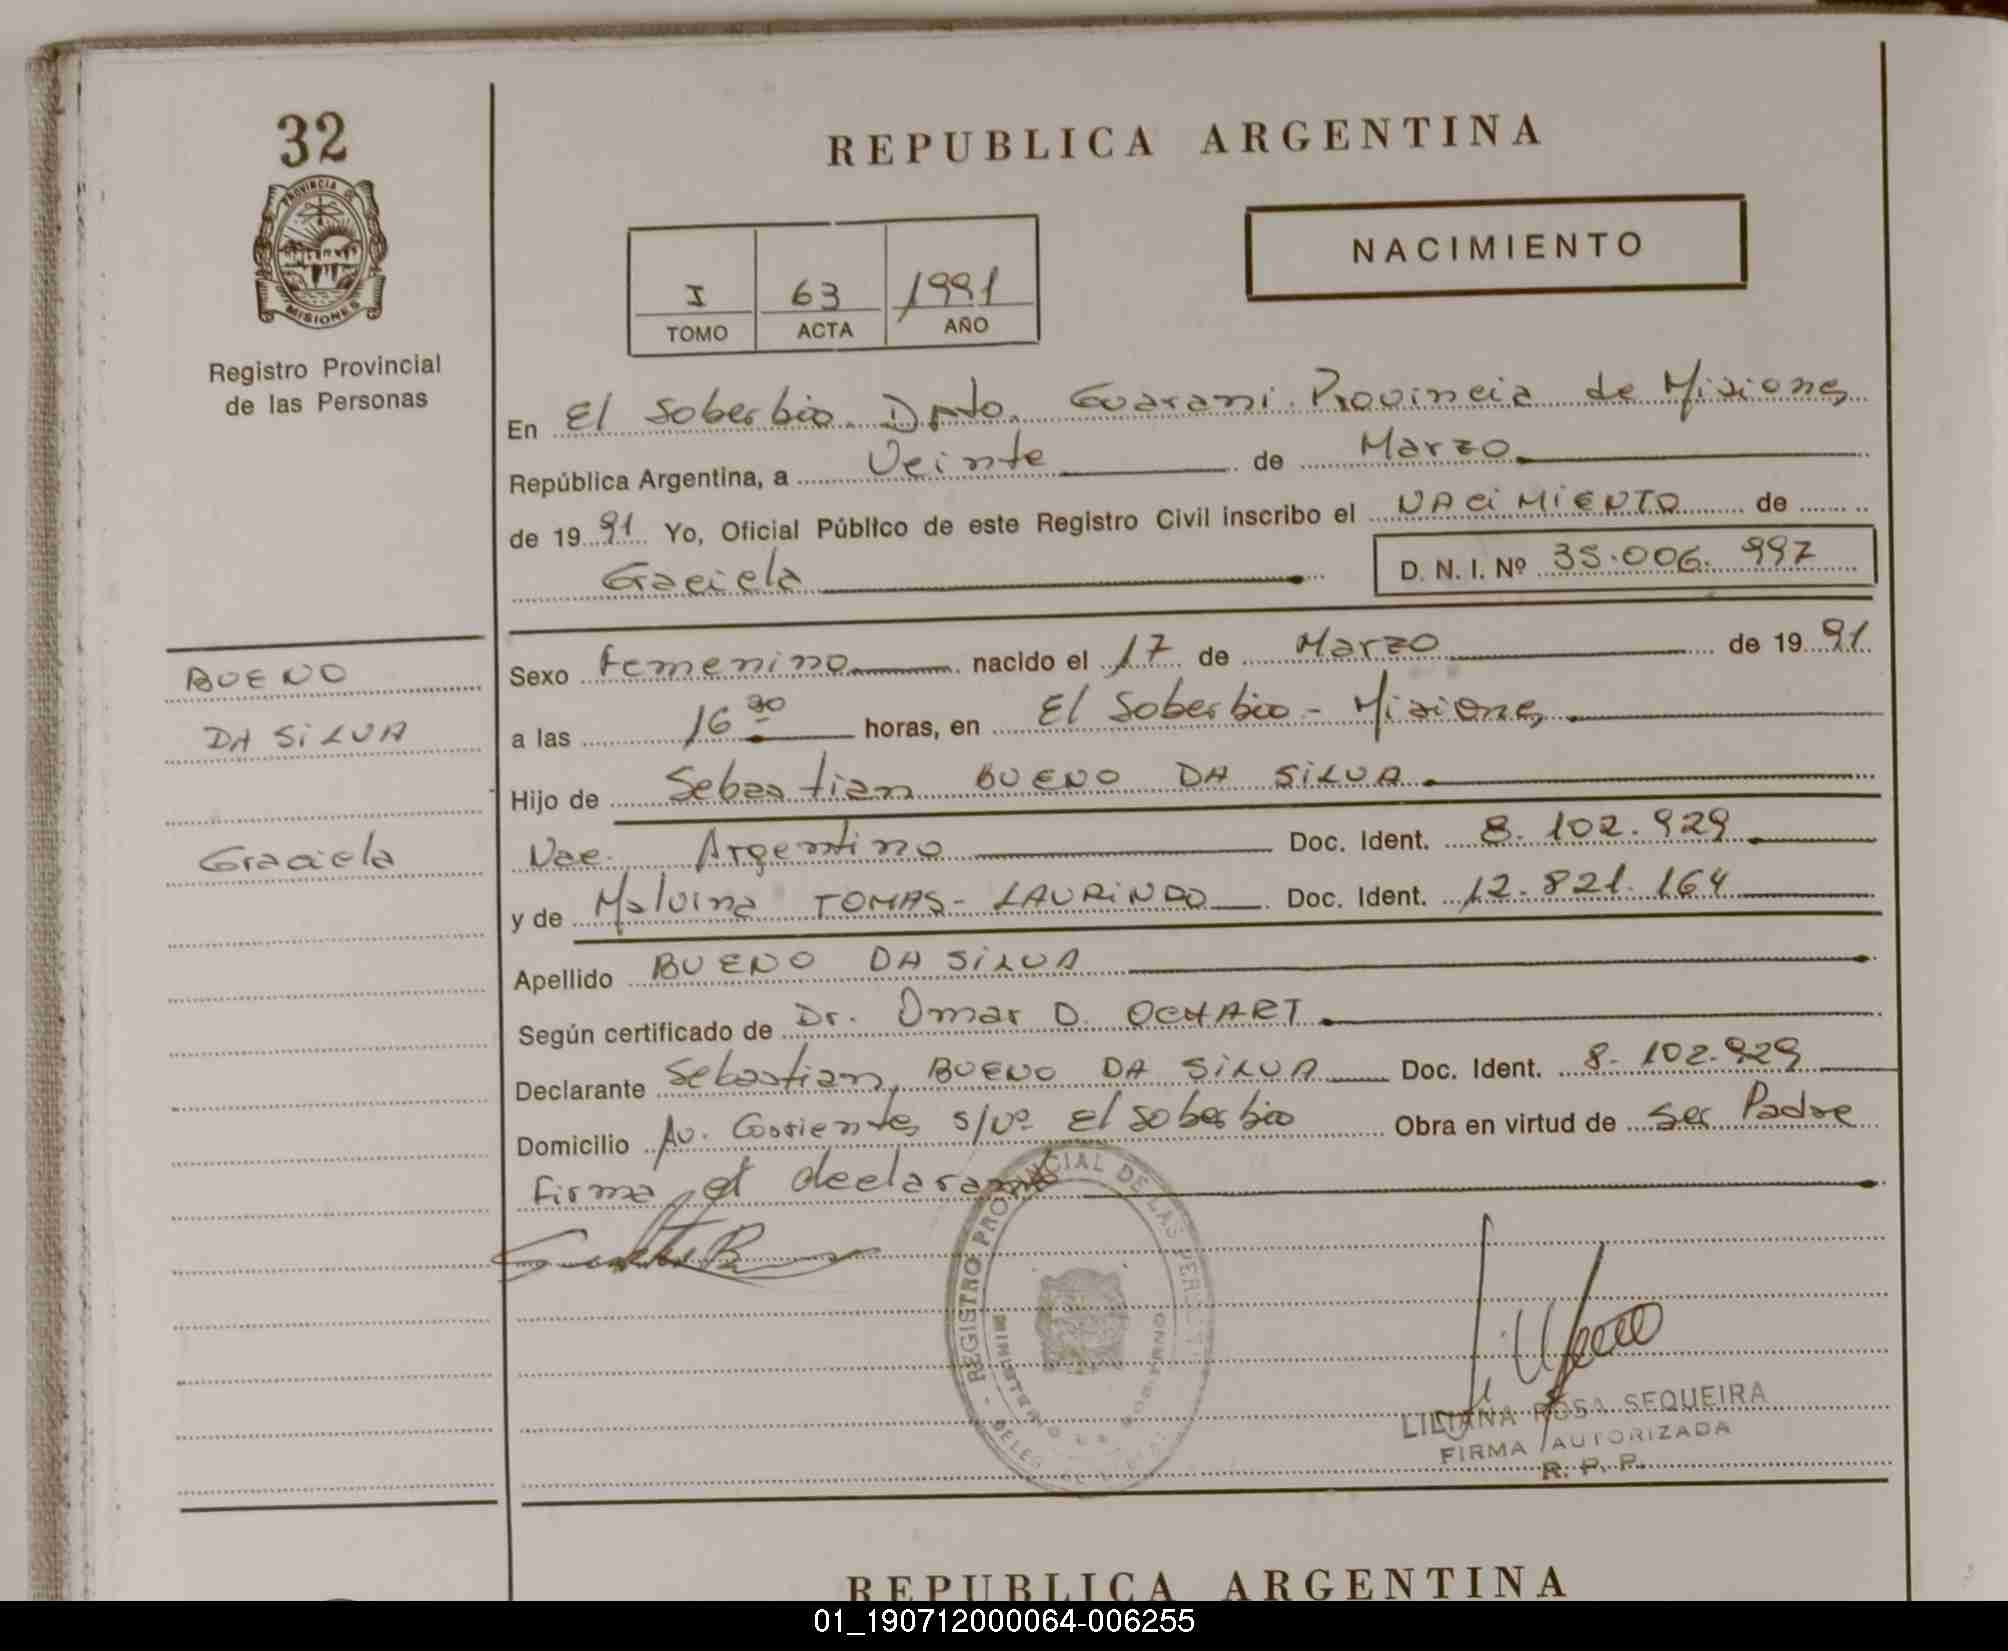 32
PROVINCIA DE
MISIONES
Registro Provincial
de las Personas
REPUBLICA ARGENTINA
NACIMIENTO
I 63 1991
TOMO ACTA AÑO
En El Soberbio. Dpto. Guarani. Provincia de Misiones
República Argentina, a Veinte de Marzo
de 1991 Yo, Oficial Público de este Registro Civil inscribo el NACIMIENTO de
Graciela D. N. I. Nº 35.006.997
Sexo Femenino nacido el 17 de Marzo de 1991
a las 16 30 horas, en El Soberbio - Misiones
Hijo de Sebastian BUENO DA SILVA
Nac. Argentino Doc. Ident. 8.102.929
y de Malvina TOMAS-LAURINDO Doc. Ident. 12.821.164
Apellido BUENO DA SILVA
Según certificado de Dr. Omar D. OCHART
Declarante Sebastian BUENO DA SILVA Doc. Ident. 8.102.929
Domicilio Av. Corrientes s/Nº El Soberbio Obra en virtud de ser Padre
Firma el declarante
BUENO
DA SILVA
Graciela
REGISTRO PROVINCIAL DE LAS
MINISTERIO DE GOBIERNO
LILIANA ROSA SEQUEIRA
FIRMA AUTORIZADA
R. P. P.
REPUBLICA ARGENTINA
01_190712000064-006255